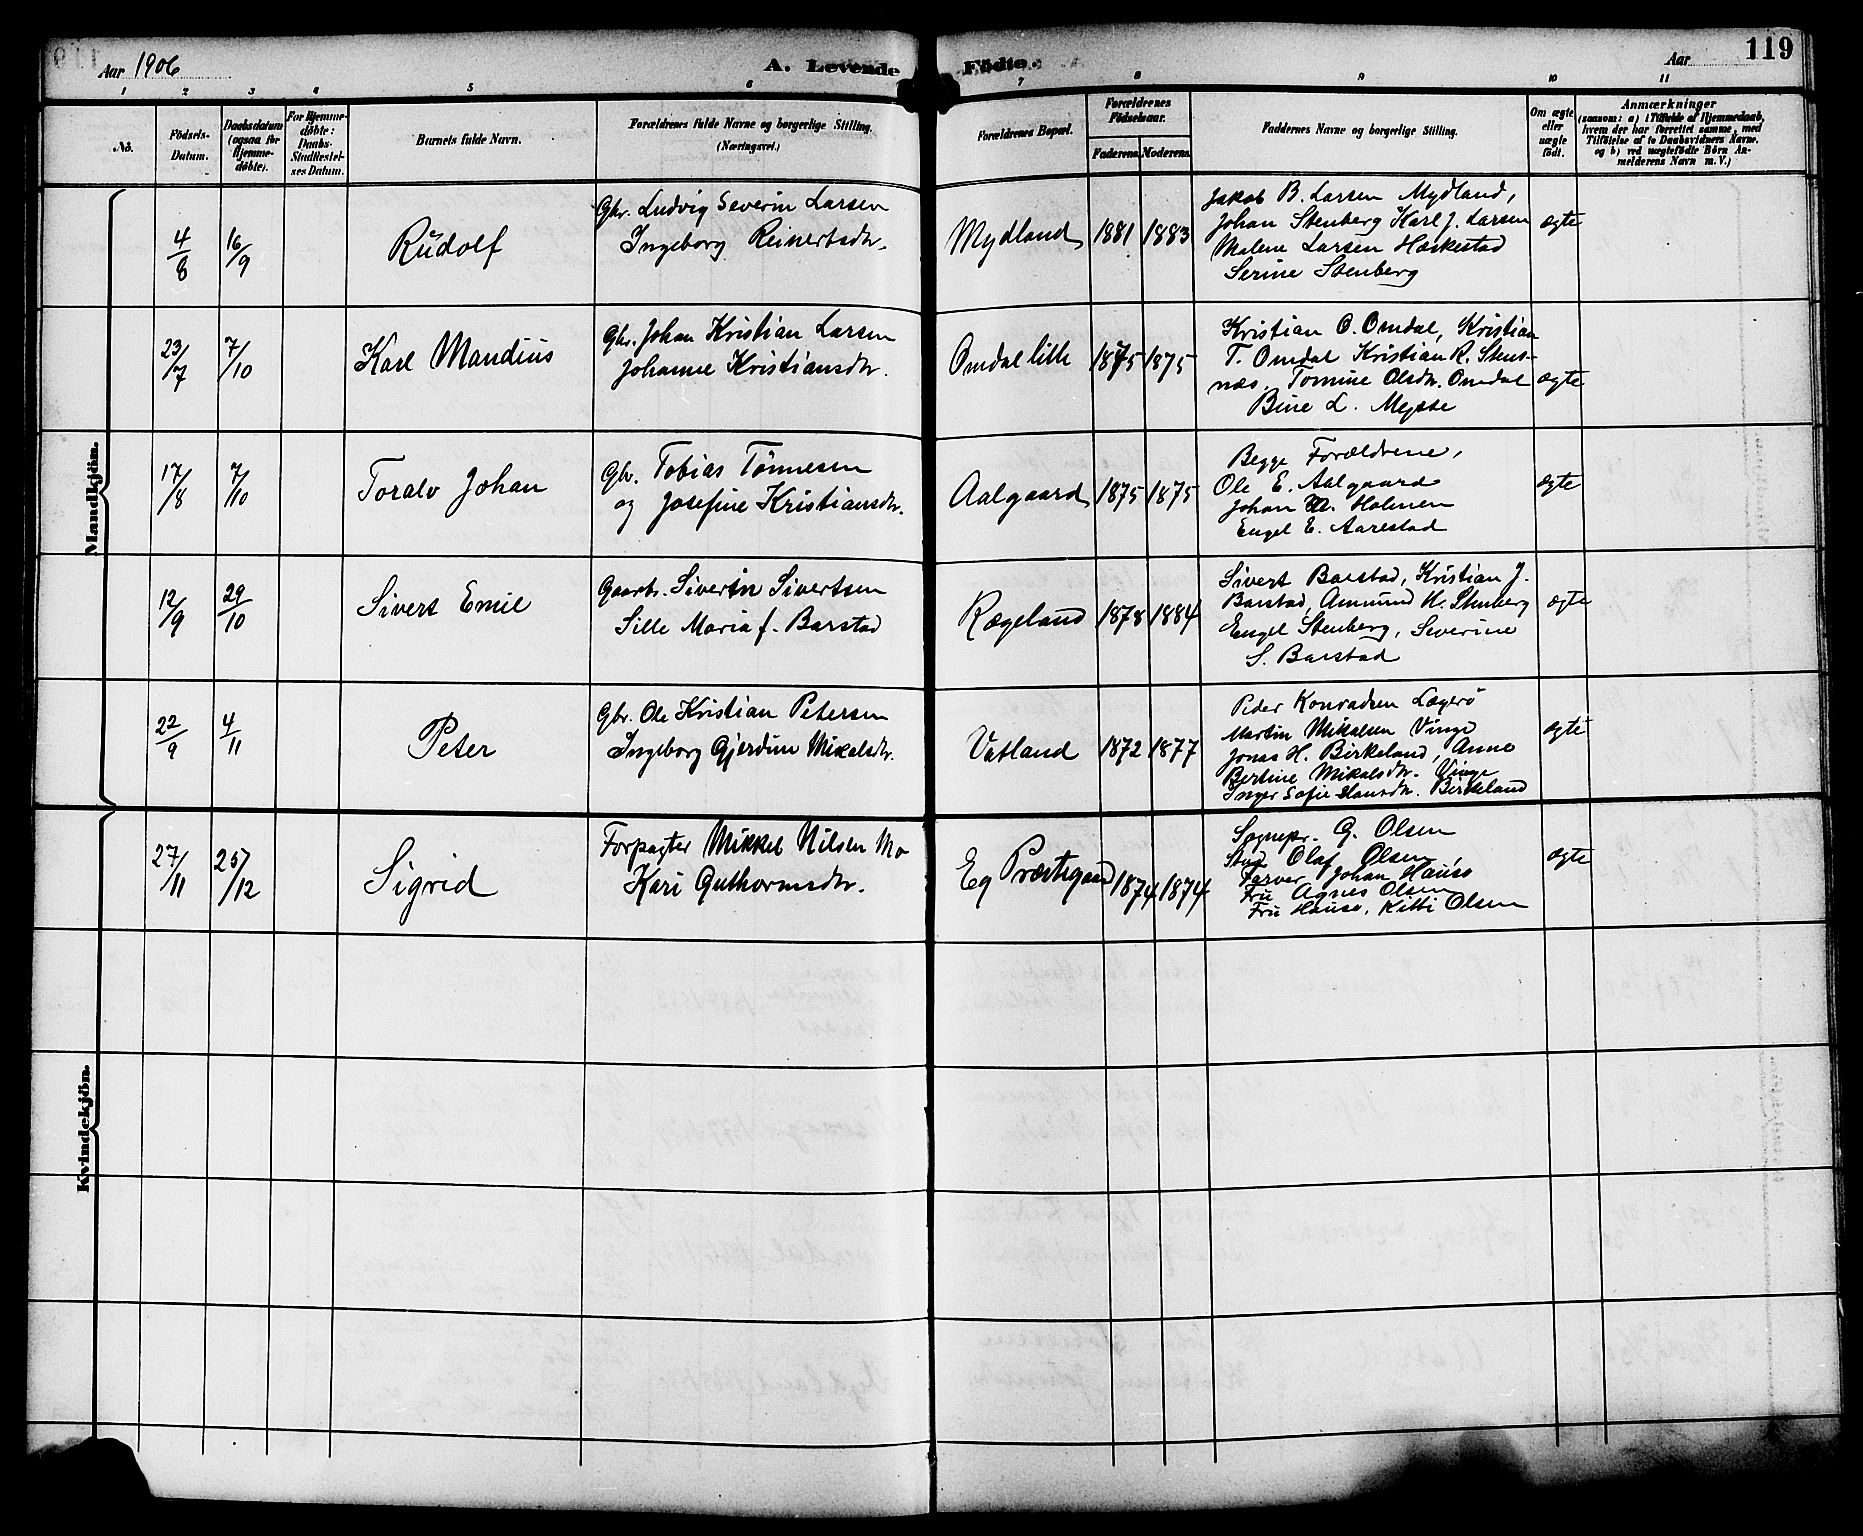 Aar 1906
A. Levende Födte.
Aar
119
1 2 3 4 5 6 7 8 9 10 11
No.
Födsels-
Datum.
Daabsdatum
(ogsaa for
Hjemme-
døbte).
For Hjemme-
døbte:
Daabs-
Stadfæstel-
ses Datum.
Barnets fulde Navn.
Forældrenes fulde Navne og borgerlige Stilling.
(Næringsvei.)
Forældrenes Bopæl.
Forældrenes
Födselsaar.
Faderens.
Moderens.
Faddernes Navne og borgerlige Stilling.
Om ægte
eller
uægte
født.
Anmærkninger
(saasom: a) i Tilfælde af Hjemmedaab,
hvem der har forrettet samme, med
Tilföielse af to Daabsvidners Navne,
og b) ved uægtefödte Börn An-
melderens Navn m. V.)
Mandkjön.
4/8
16/9
Rudolf
Gbr. Ludvig Severin Larsen
Ingeborg Reinertsdtr.
Mydland
1881
1883
Jakob B. Larsen Mydland,
Johan Stenberg Karl J. Larsen
Malene Larsen Haskestad
Serine Stenberg
ægte
23/7
7/10
Karl Mandius
Gbr. Johan Kristian Larsen
Johanne Kristiansdtr.
Omdal lille
1875
1875
Kristian O. Omdal, Kristian
T. Omdal Kristian R. Stens-
næs, Tomine Olsdtr. Omdal
Bine L. Mysse
ægte
17/8
7/10
Toralv Johan
Gbr. Tobias Tönnesen
og Josefine Kristiansdtr.
Aalgaard
1875
1875
Begge Forældrene,
Ole E. Aalgaard
Johan Holmen
Engel E. Aarestad
ægte
12/9
29/10
Sivert Emil
Gaarbr. Sivertin Sivertsen
Sille Maria f. Barstad
Rægeland
1878
1884
Sivert Barstad, Kristian J.
Barstad, Amund H. Stenberg
Engel Stenberg, Severine
S. Barstad
ægte
22/9
4/11
Peter
Gbr. Ole Kristian Petersen
Ingeborg Gjerdine Mikalsdtr.
Vatland
1872
1877
Peder Konradsen Lægerö
Martin Mikalsen Vinge
Jonas H. Birkeland, Anne
Bertine Mikalsdtr. Vinge
Inger Sofie Hansdtr. Birkeland
ægte
Kvindekjön.
27/11
25/12
Sigrid
Forpagter Mikkel Nilsen Mo
Kari Guthormsdtr.
Eg Præstegaard
1874
1874
Sognepr. G. Olsen
Stud Olaf Olsen,
Farver Johan Hauso
Fru Agnes Olsen
Fru Hauso, Kitti Olsen
ægte